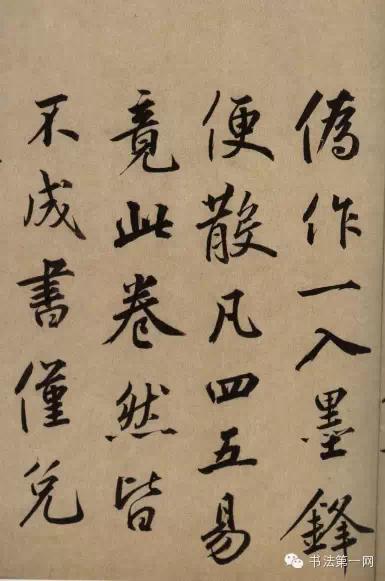 偽作一入墨鋒
便散凡四五易
竟此卷然皆
不成書僅免
书法第一网